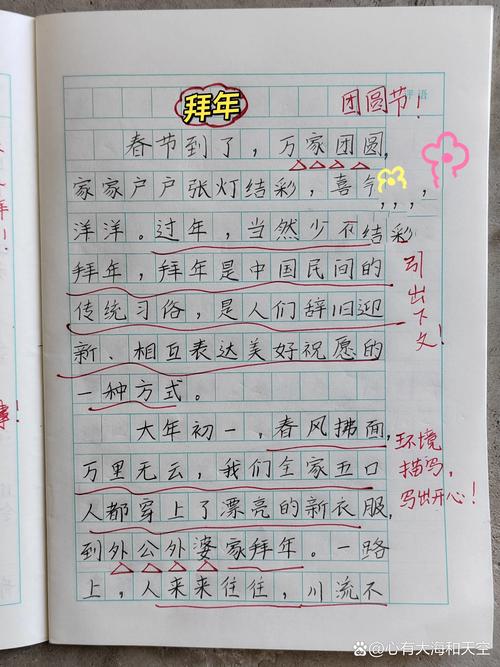 拜年
团圆节！
语
春节到了，万家团圆，
家家户户张灯结彩，喜气，，，，
洋洋。过年，当然少不结彩
拜年，拜年是中国民间的
传统习俗，是人们辞旧迎
新、相互表达美好祝愿的
一种方式。
引出下文！
大年初一，春风拂面，
万里无云，我们全家五口
人都穿上了漂亮的新衣服，
到外公外婆家拜年。一路
上，人来来往往，川流不
环境
描写，
写出开心！
@心有大海和天空